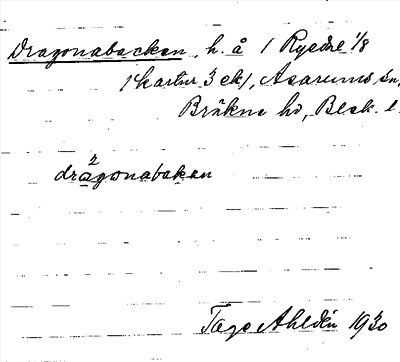 Dragonabacken, h. å 1 Rysdre 1/8
(kartor 3 ek), Asarums sn,
Bräkne hd, Blek. l.
2
dragonabakan
Tage Ahldén 1930